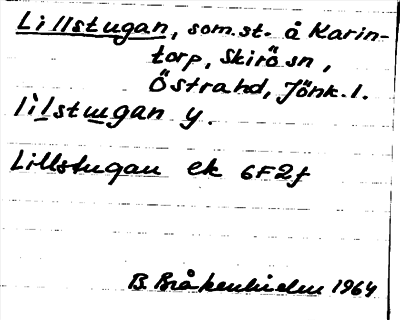 Lillstugan, som.st. å Karin-
torp, Skirö sn,
Östra hd, Jönk. l.
lilstugan y.
Lillstugan ek 6F2f
B. Bråkenhielm 1964